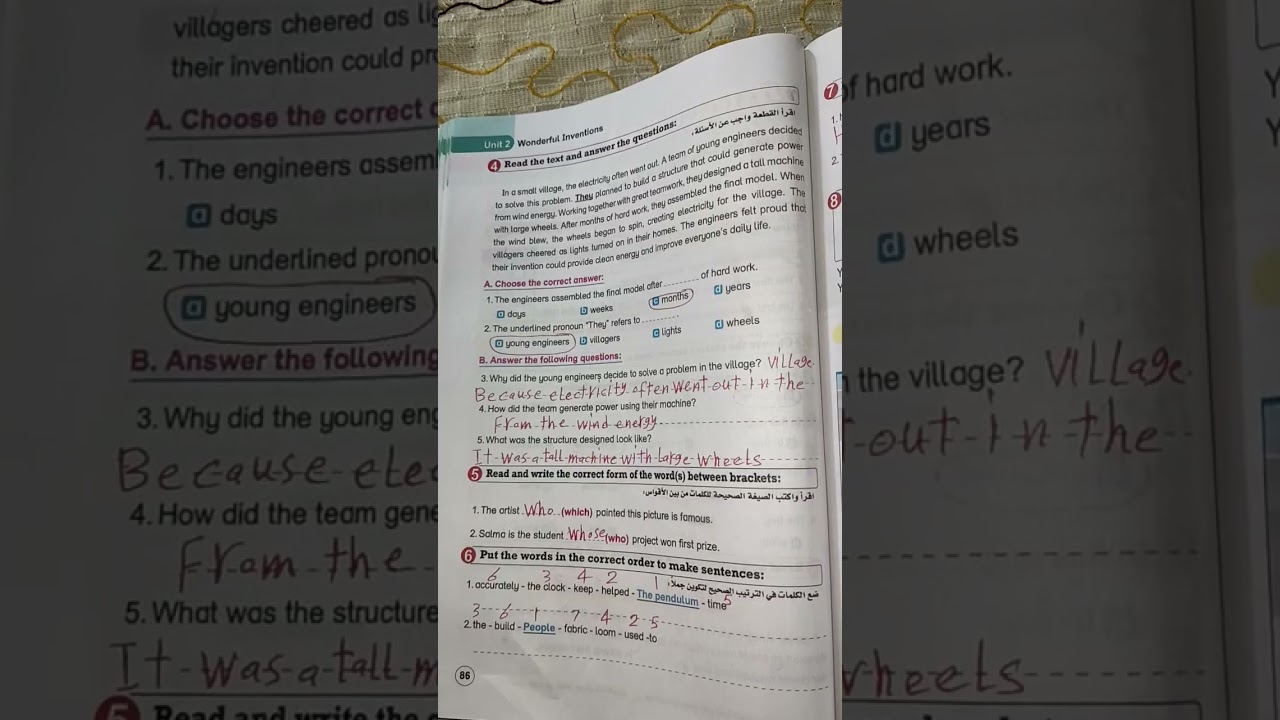 villagers cheered as
their invention could
A. Choose the correct
1. The engineers assem
a days
2. The underlined pronou
a young engineers
B. Answer the following
3. Why did the young eng
Because elec
4. How did the team gene
From the
5. What was the structure
It was a tall m
5 Read and write the
Unit 2 Wonderful Inventions
4 Read the text and answer the questions: اقرأ القطعة واجب عن الأسئلة:
In a small village, the electricity often went out. A team of young engineers decided
to solve this problem. They planned to build a structure that could generate power
from wind energy. Working together with great teamwork, they designed a tall machine
with large wheels. After months of hard work, they assembled the final model. When
the wind blew, the wheels began to spin, creating electricity for the village. The
villagers cheered as lights turned on in their homes. The engineers felt proud that
their invention could provide clean energy and improve everyone's daily life.
A. Choose the correct answer:
1. The engineers assembled the final model after ......... of hard work.
a days b weeks c months d years
2. The underlined pronoun "They" refers to .........
a young engineers b villagers c lights d wheels
B. Answer the following questions:
3. Why did the young engineers decide to solve a problem in the village? village.
Because electricity often went out in the
4. How did the team generate power using their machine?
From the wind energy
5. What was the structure designed look like?
It was a tall machine with large wheels
5 Read and write the correct form of the word(s) between brackets:
اقرأ واكتب الصيغة الصحيحة للكلمات من بين الأقواس:
1. The artist Who (which) painted this picture is famous.
2. Salma is the student Whose (who) project won first prize.
6 Put the words in the correct order to make sentences:
ضع الكلمات في الترتيب الصحيح لتكوين جملًا:
6 3 4 2 1
1. accurately - the clock - keep - helped - The pendulum - time 5
3 6 1 7 4 2 5
2. the - build - People - fabric - loom - used -to
86
7
1.
2.
8
of hard work.
d years
d wheels
the village? village.
out in the
wheels